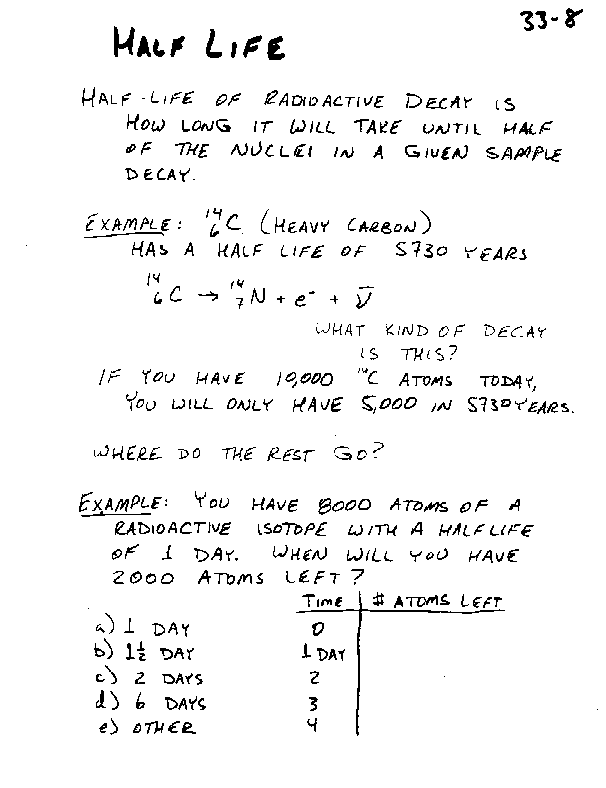 33-8
HALF LIFE
HALF-LIFE OF RADIOACTIVE DECAY IS
HOW LONG IT WILL TAKE UNTIL HALF
OF THE NUCLEI IN A GIVEN SAMPLE
DECAY.
EXAMPLE: ¹⁴₆C (HEAVY CARBON)
HAS A HALF LIFE OF 5730 YEARS
¹⁴₆C → ¹⁴₇N + e⁻ + ν̅
WHAT KIND OF DECAY
IS THIS?
IF YOU HAVE 10,000 ¹⁴C ATOMS TODAY,
YOU WILL ONLY HAVE 5,000 IN 5730 YEARS.
WHERE DO THE REST GO?
EXAMPLE: YOU HAVE 8000 ATOMS OF A
RADIOACTIVE ISOTOPE WITH A HALF LIFE
OF 1 DAY. WHEN WILL YOU HAVE
2000 ATOMS LEFT?
TIME # ATOMS LEFT
a) 1 DAY 0
b) 1½ DAY 1 DAY
c) 2 DAYS 2
d) 6 DAYS 3
e) OTHER 4